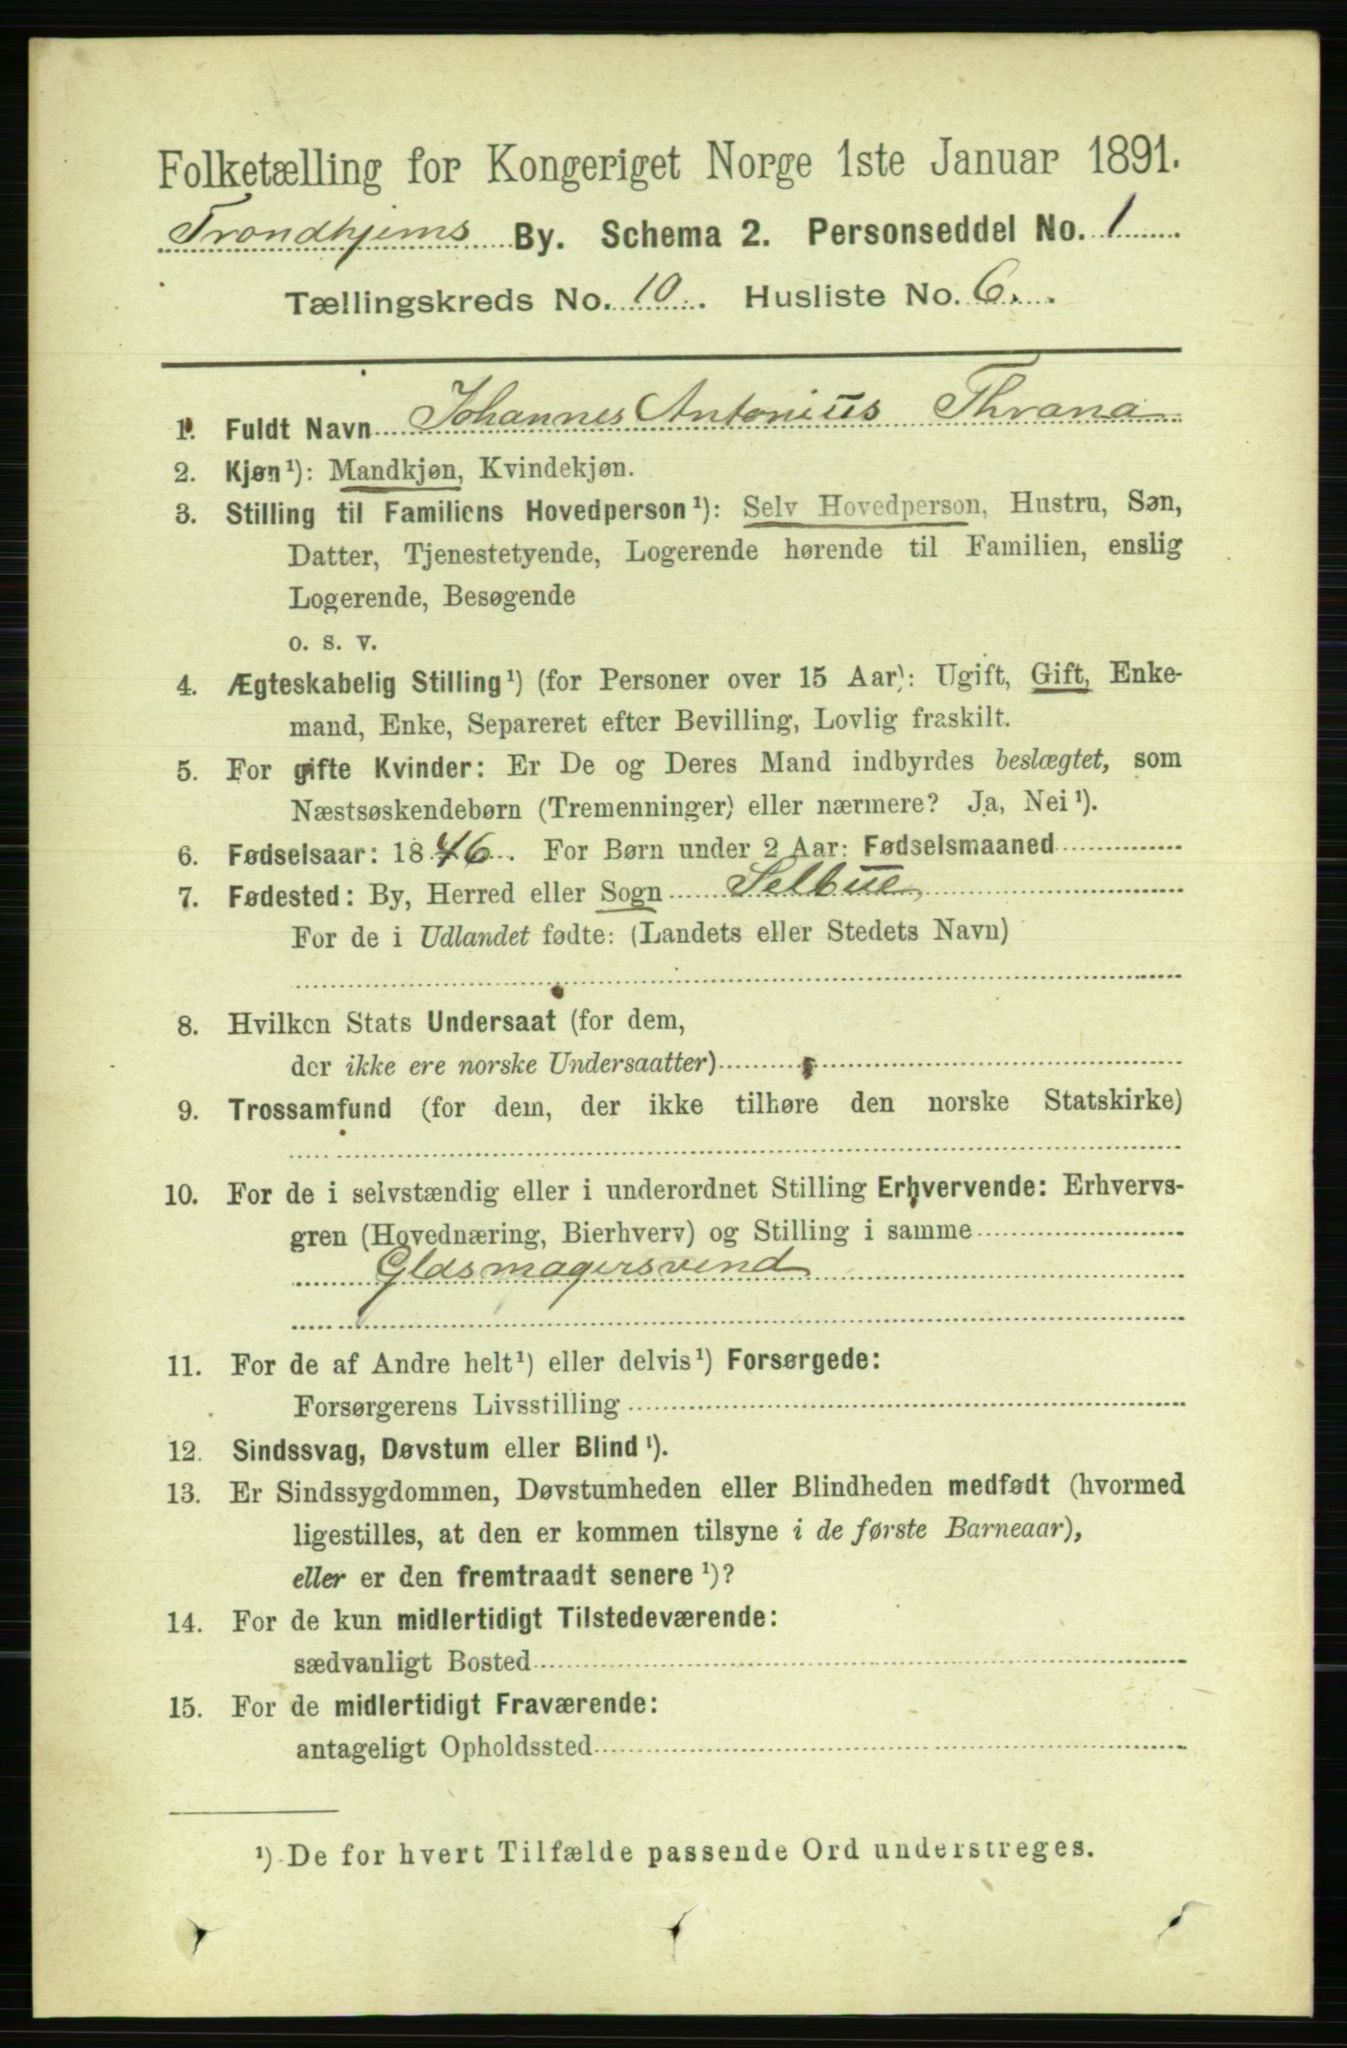 Folketælling for Kongeriget Norge 1ste Januar 1891.
Trondhjems By. Schema 2. Personseddel No. 1
Tællingskreds No. 10. Husliste No. 6.
1. Fuldt Navn Johannes Antonius Thrana
2. Kjøn¹): Mandkjøn, Kvindekjøn.
3. Stilling til Familiens Hovedperson¹): Selv Hovedperson, Hustru, Søn,
Datter, Tjenestetyende, Logerende hørende til Familien, enslig
Logerende, Besøgende
o. s. v.
4. Ægteskabelig Stilling¹) (for Personer over 15 Aar): Ugift, Gift, Enke-
mand, Enke, Separeret efter Bevilling, Lovlig fraskilt.
5. For gifte Kvinder: Er De og Deres Mand indbyrdes beslægtet, som
Næstsøskendebørn (Tremenninger) eller nærmere? Ja, Nei¹).
6. Fødselsaar: 1846. For Børn under 2 Aar: Fødselsmaaned
7. Fødested: By, Herred eller Sogn Selbue
For de i Udlandet fødte: (Landets eller Stedets Navn)
8. Hvilken Stats Undersaat (for dem,
der ikke ere norske Undersaatter)
9. Trossamfund (for dem, der ikke tilhøre den norske Statskirke)
10. For de i selvstændig eller i underordnet Stilling Erhvervende: Erhvervs-
gren (Hovednæring, Bierhverv) og Stilling i samme
Glasmagersvend
11. For de af Andre helt¹) eller delvis¹) Forsørgede:
Forsørgerens Livsstilling
12. Sindssvag, Døvstum eller Blind¹).
13. Er Sindssygdommen, Døvstumheden eller Blindheden medfødt (hvormed
ligestilles, at den er kommen tilsyne i de første Barneaar),
eller er den fremtraadt senere¹)?
14. For de kun midlertidigt Tilstedeværende:
sædvanligt Bosted
15. For de midlertidigt Fraværende:
antageligt Opholdssted
¹) De for hvert Tilfælde passende Ord understreges.